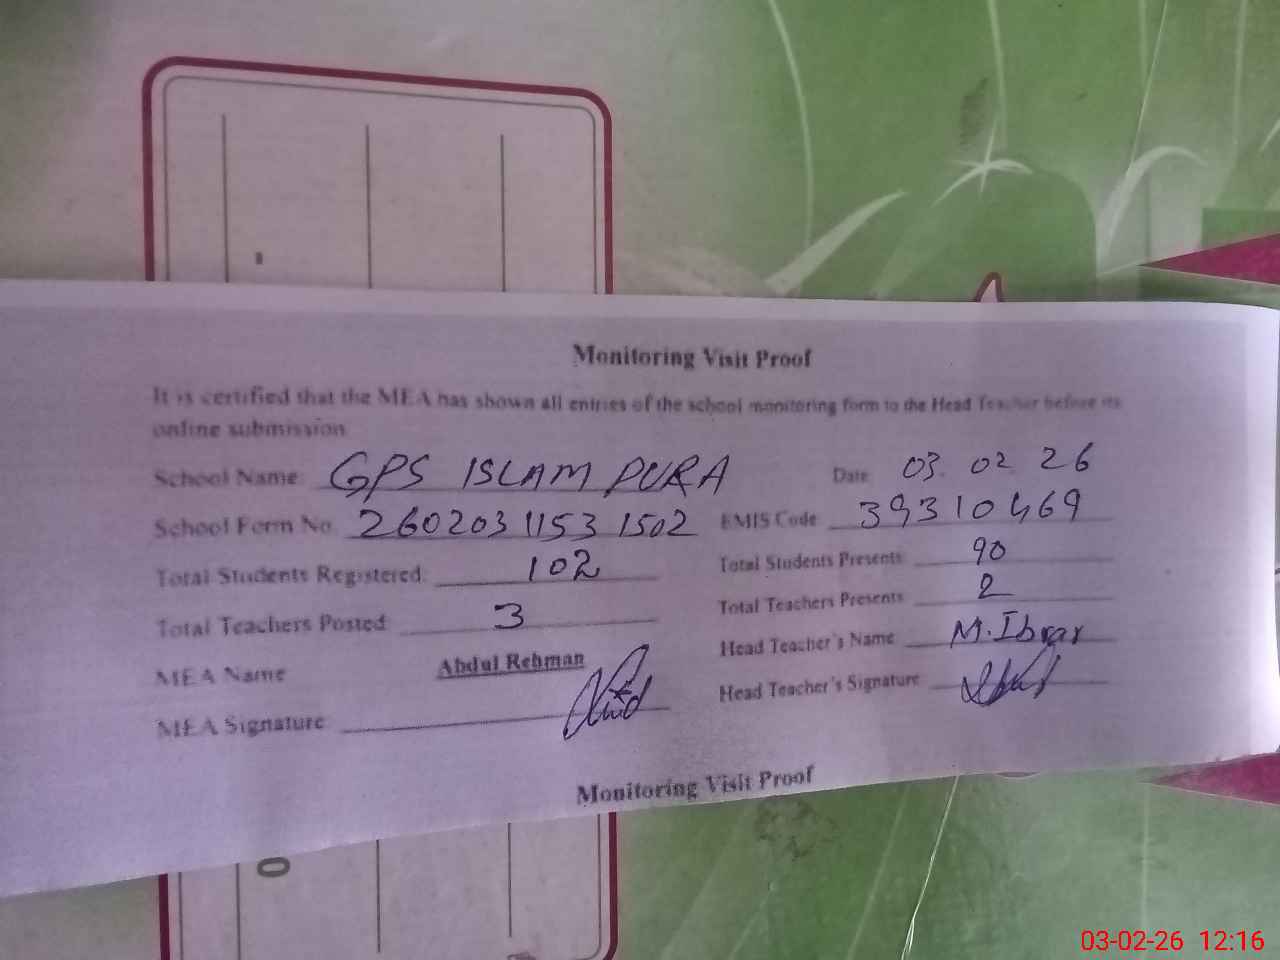 Monitoring Visit Proof
It is certified that the MEA has shown all entries of the school monitoring form to the Head Teacher before its
online submission
School Name: GPS ISLAM PURA Date 03.02 26
School Form No. 2602031153 1502 EMIS Code 39310469
Total Students Registered: 102 Total Students Presents: 90
Total Teachers Posted: 3 Total Teachers Presents 2
MEA Name Abdul Rehman Head Teacher's Name M.Ibrar
MEA Signature Head Teacher's Signature
Monitoring Visit Proof
0
03-02-26 12:16